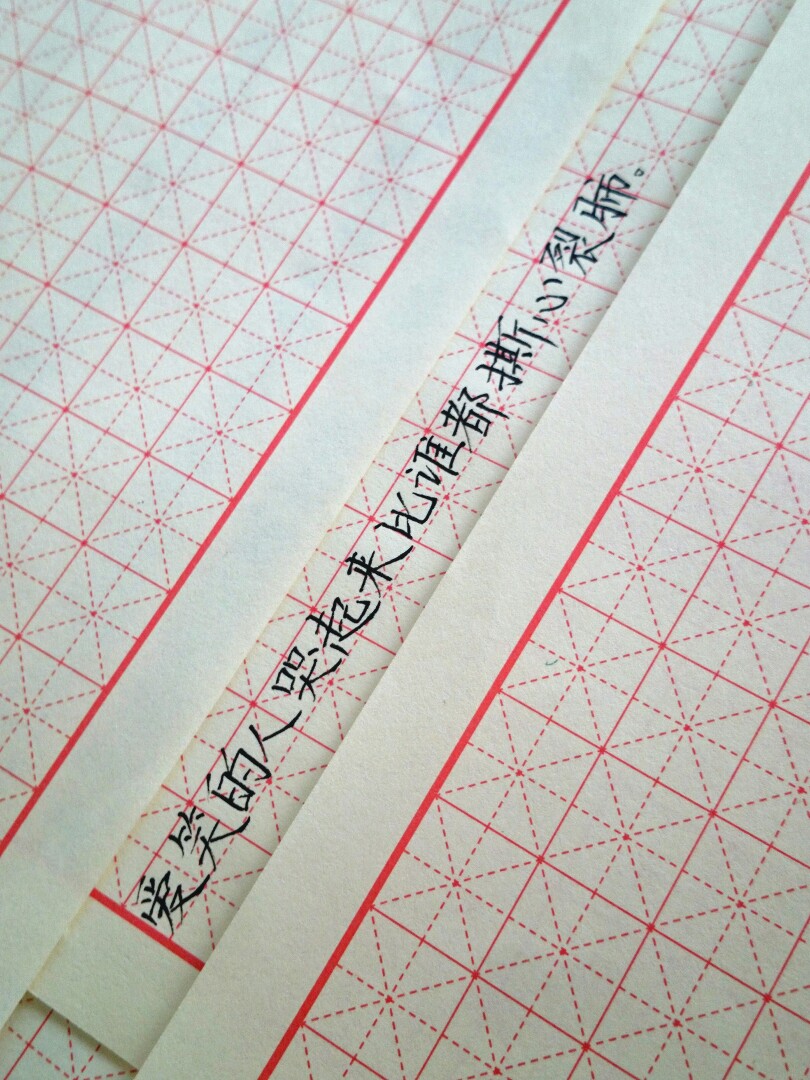 爱笑的人哭起来比谁都撕心裂肺。